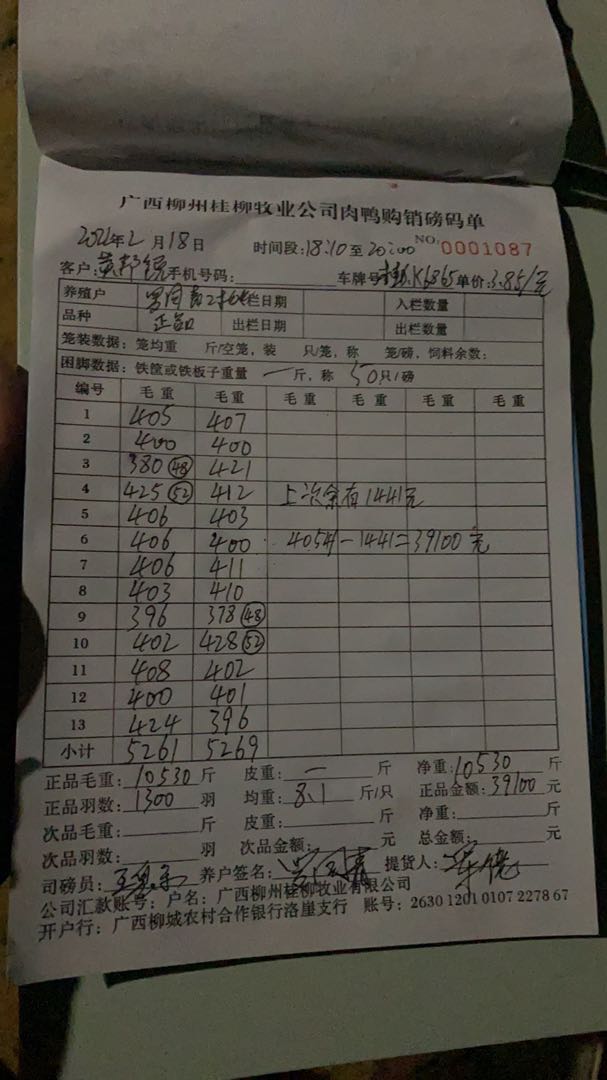 广西柳州桂柳牧业公司肉鸭购销磅码单
2022年2月18日 时间段:18:10至20:00 NO:0001087
客户:黄邦锐 手机号码: 车牌号 K6865 单价:3.85/元
养殖户 出栏日期 入栏数量
品种 正品 出栏日期 出栏数量
笼装数据:笼均重 斤/空笼,装 只/笼,称 笼/磅,饲料余数:
困脚数据:铁筐或铁板子重量 一 斤,称 50只/磅
编号 毛重 毛重 毛重 毛重 毛重 毛重
1 405 407
2 400 400
3 380 48 421
4 425 52 412 上次余有1441元
5 406 403
6 406 400 40541-1441=39100元
7 406 411
8 403 410
9 396 378 48
10 402 428 52
11 408 402
12 400 401
13 424 396
小计 5261 5269
正品毛重:10530斤 皮重:一斤 净重:10530斤
正品羽数:1300羽 均重:8.1斤/只 正品金额:39100元
次品毛重: 斤 皮重: 斤 净重: 斤
次品羽数: 羽 次品金额: 元 总金额: 元
司磅员: 养户签名: 提货人:
公司汇款账号:户名:广西柳州桂柳牧业有限公司
开户行:广西柳城农村合作银行洛崖支行 账号:2630 1201 0107 2278 67